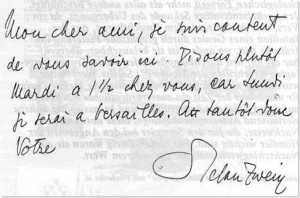 Mon cher ami, je suis content
de vous savoir ici. Disons plutôt
Mardi a 1½ chez vous, car Lundi
je serai a Versailles. A tantôt donc
Votre
Stefan Zweig